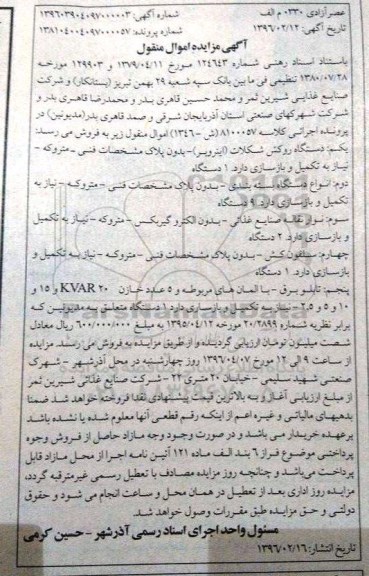 عصرآزادی ۰۳۳۰ م الف
تاریخ آگهی: ۱۳۹۶/۰۲/۱۲
شماره آگهی: ۱۳۹۶۰۳۹۰۴۰۹۷۰۰۰۰۰۳
شماره پرونده: ۱۳۸۱۰۴۰۰۴۰۹۷۰۰۰۰۵۷
آگهی مزایده اموال منقول
باستناد اسناد رهنی شماره ۱۲۴۶۴۳ مورخ ۱۳۷۹/۰۴/۱۱ و ۱۲۹۹۰۳ مورخه
۱۳۸۰/۰۷/۲۸ تنظیمی فی ما بین بانک سپه شعبه ۲۹ بهمن تبریز (بستانکار) و شرکت
صنایع غذایی شیرین ثمر و محمد حسین قاهری بدر و محمدرضا قاهری بدر و
شرکت شهرکهای صنعتی استان آذربایجان شرقی و صمد قاهری بدر (مدیونین) در
پرونده اجرائی کلاسه ۸۱۰۰۰۵۷ (ش - ۱۳۴۶) اموال منقول زیر به فروش می رسد:
یکم: دستگاه روکش شکلات (اینروبر)-بدون پلاک مشخصات فنی - متروکه -
نیاز به تکمیل و بازسازی دارد. ۱ دستگاه
دوم: انواع دستگاه بسته بندی - بدون پلاک مشخصات فنی - متروکه - نیاز به
تکمیل و بازسازی دارد. ۹ دستگاه
سوم: نوار نقاله صنایع غذائی - بدون الکترو گیربکس - متروکه - نیاز به تکمیل
و بازسازی دارد. ۲ دستگاه
چهارم: سلفون کش - بدون پلاک مشخصات فنی - متروکه - نیاز به تکمیل و
بازسازی دارد. ۱ دستگاه
پنجم: تابلو برق - با المان های مربوطه و ۵ عدد خازن ۲۰ KVAR و ۱۵ و
۱۰ و ۵ و ۲،۵ - نیاز به تکمیل و بازسازی دارد ۱ دستگاه متعلق به مدیونین که
برابر نظریه شماره ۲۰/۲۸۹۹ مورخه ۱۳۹۵/۰۴/۱۲ به مبلغ ۶۰۰/۰۰۰/۰۰۰ ریال معادل
شصت میلیون تومان ارزیابی گردیده و از طریق مزایده به فروش می رسد. مزایده
از ساعت ۹ الی ۱۲ مورخ ۱۳۹۶/۰۴/۰۷ روز چهارشنبه در محل آذرشهر - شهرک
صنعتی شهید سلیمی - خیابان ۲۰ متری ۲۲ - شرکت صنایع غذائی شیرین ثمر
از مبلغ ارزیابی آغاز و به بالاترین قیمت پیشنهادی نقدا فروخته خواهد شد ضمنا
بدهیهای مالیاتی و غیره اعم از اینکه رقم قطعی آنها معلوم شده یا نشده باشد
برعهده خریدار می باشد و در صورت وجود وجه مازاد حاصل از فروش وجوه
پرداختی موضوع فراز ۶ بند الف ماده ۱۲۱ آئین نامه اجرا از محل مازاد قابل
پرداخت می باشد و چنانچه روز مزایده مصادف با تعطیل رسمی غیرمترقبه گردد،
مزایده روز اداری بعد از تعطیل در همان محل و ساعت انجام می شود و حقوق
دولتی و حق مزایده طبق مقررات وصول خواهد شد.
مسئول واحد اجرای اسناد رسمی آذرشهر - حسین کرمی
تاریخ انتشار: ۱۳۹۶/۰۲/۱۶